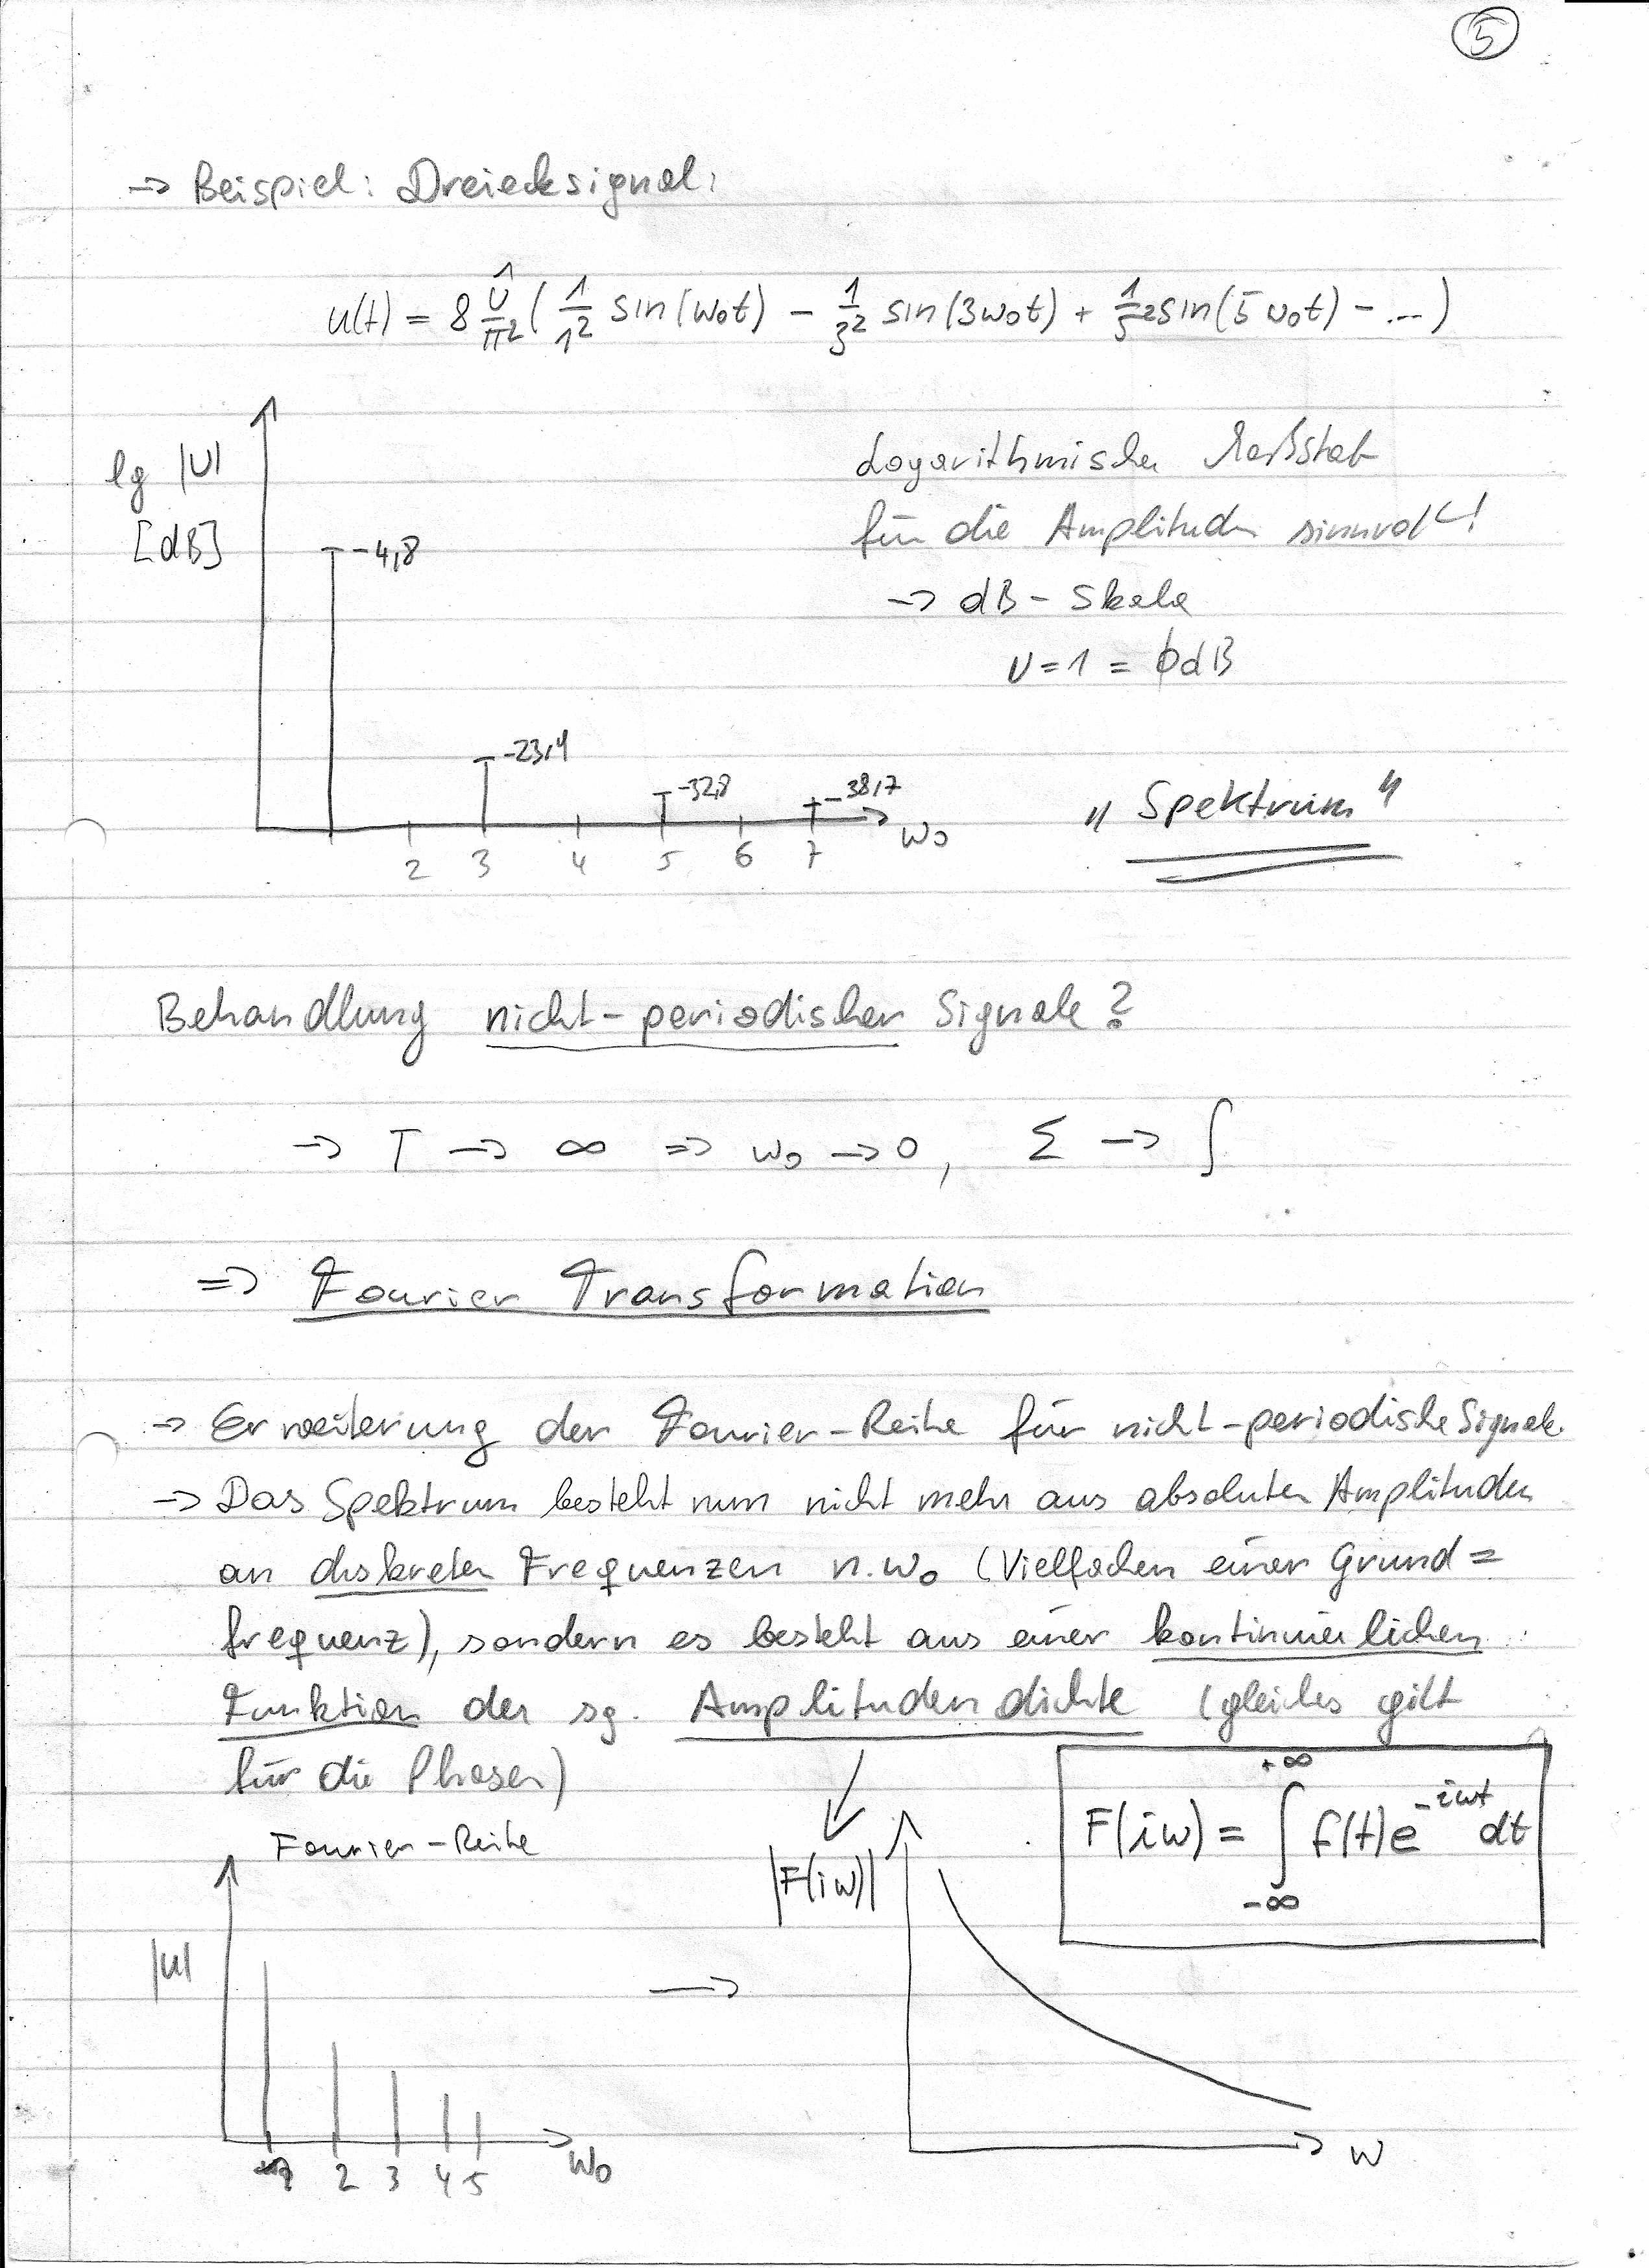 5
→ Beispiel: Dreiecksignal:
u(t) = 8 Û/π² ( 1/1² sin(ω₀t) − 1/3² sin(3ω₀t) + 1/5² sin(5ω₀t) − ... )
lg |U|
[dB]
-4,8
-23,4
-32,8
-38,7
2 3 4 5 6 7
ω₀
Logarithmischer Maßstab
für die Amplituden sinnvoll!
→ dB-Skala
U=1 = 0dB
„Spektrum"
Behandlung nicht-periodischer Signale?
→ T → ∞ ⇒ ω₀ → 0, Σ → ∫
⇒ Fourier Transformation
→ Erweiterung der Fourier-Reihe für nicht-periodische Signale.
→ Das Spektrum besteht nun nicht mehr aus absoluten Amplituden
an diskreten Frequenzen n·ω₀ (Vielfachen einer Grund=
frequenz), sondern es besteht aus einer kontinuierlichen
Funktion der sg. Amplitudendichte (gleiches gilt
für die Phasen)
F(iω) = ∫ f(t)e^-iωt dt
+∞
-∞
Fourier-Reihe
|U|
1 2 3 4 5
ω₀
→
|F(iω)|
ω